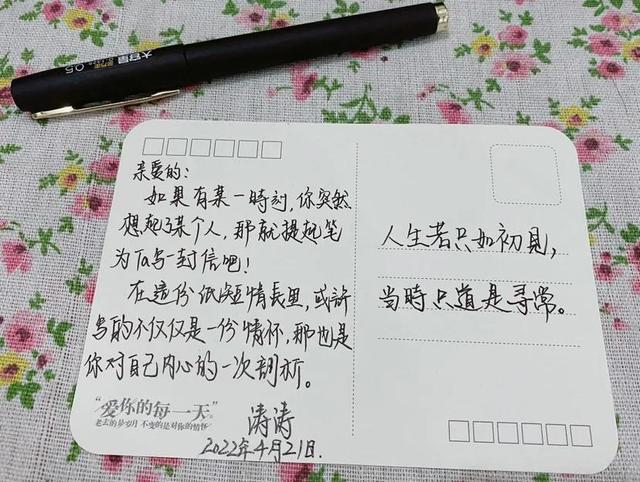 大容量 0.5
亲爱的：
如果有某一時刻，你突然
想起了某个人，那就提起笔
为Ta写一封信吧！
在這份纸短情長里，或許
写的不仅仅是一份情怀，那也是
你对自己内心的一次剖析。
“爱你的每一天”
老去的是岁月 不变的是对你的情怀
涛涛
2022年4月21日.
人生若只如初見，
当時只道是寻常。